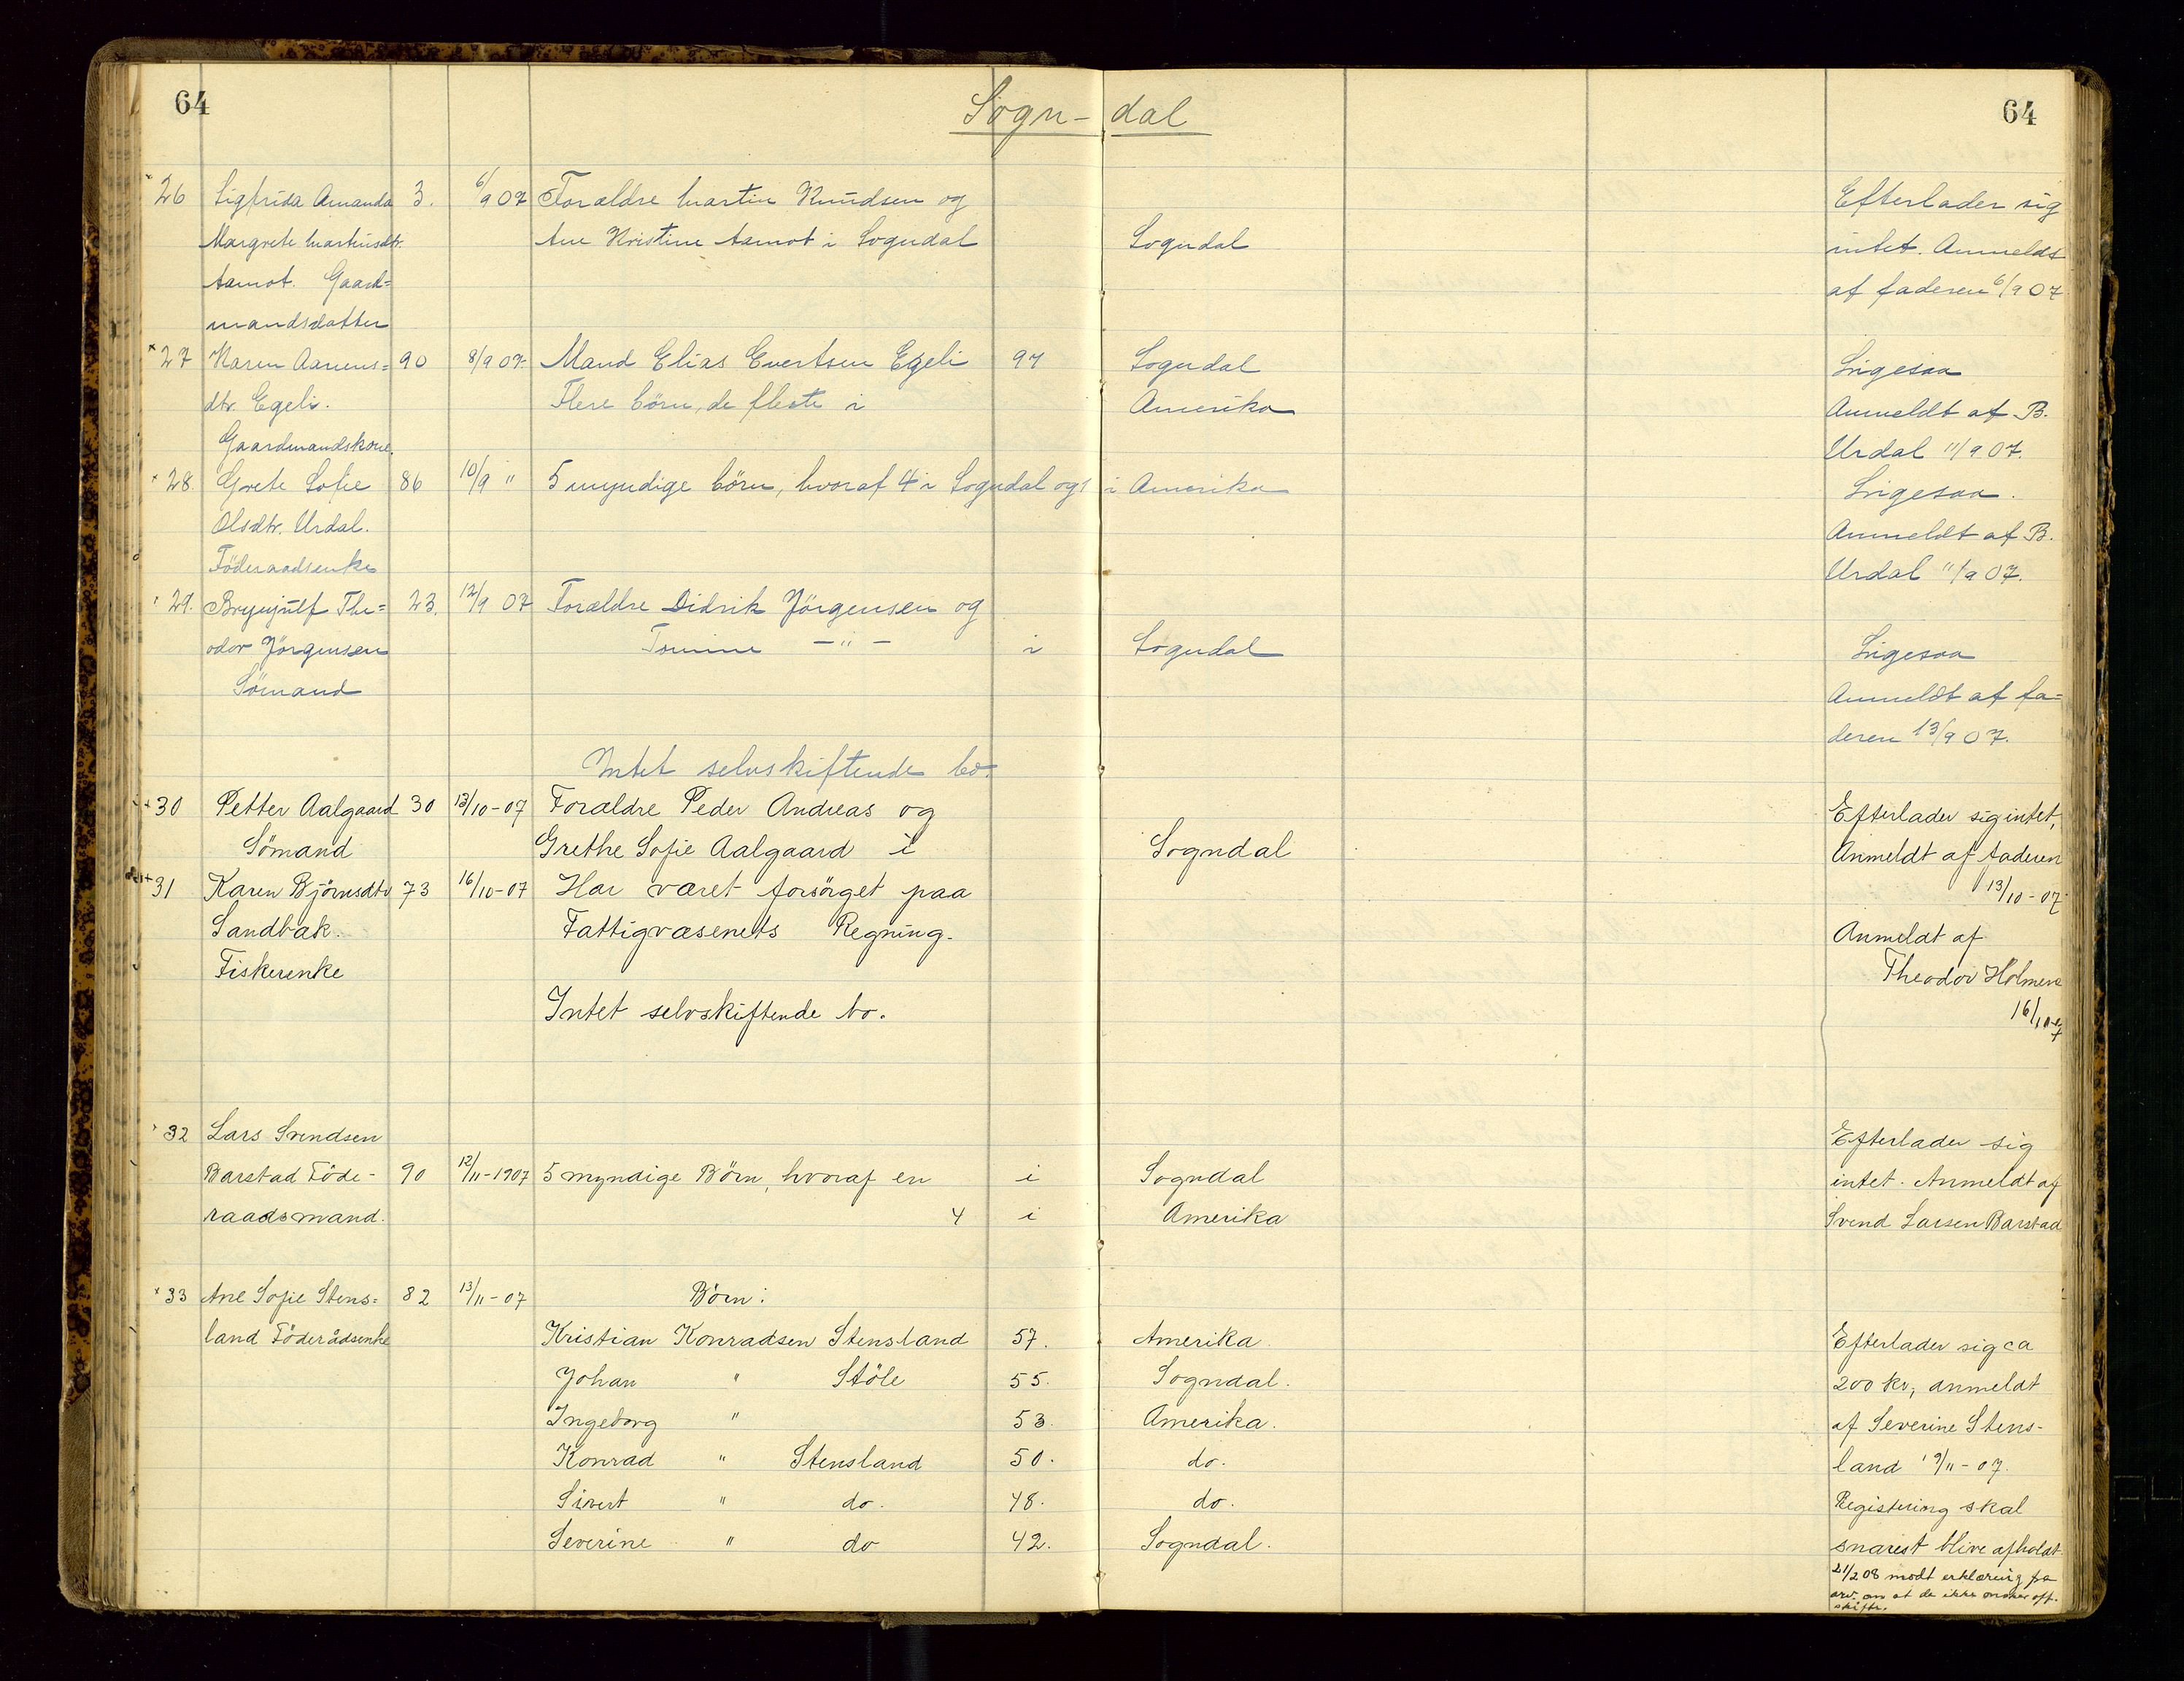 64
Sogn-dal
64
26 Sigfrida Amanda 3. 6/9 07 Forældre Martin Knudsen og Efterlader sig
Margrete Martinsdtr. Ane Kristine Aamot i Sogndal Sogndal intet. Anmeldt
Aamot. Gaard= af faderen 6/9 07
mandsdatter
27 Karen Aanens= 90 8/9 07. Mand Elias Evertsen Egeli 97 Sogndal Ligesaa
dtr. Egeli. Flere börn, de fleste i Amerika Anmeldt af B.
Gaardmandskone. Urdal 11/9 07.
28. Grete Sofie 86 10/9 " 5 myndige börn, hvoraf 4 i Sogndal og 1 i Amerika Ligesaa.
Olsdtr. Urdal. Anmeldt af B.
Föderaadsenke Urdal 11/9 07.
29. Brynjulf The= 23. 12/9 07 Forældre Didrik Jörgensen og
odor Jörgensen Tomine — " — i Sogndal Ligesaa
Sömand Anmeldt af fa=
deren 13/9 07.
Intet selvskiftende bo.
30 Petter Aalgaard 30 13/10-07 Forældre Peder Andreas og Efterlader sig intet,
Sömand Grethe Sofie Aalgaard i Sogndal Anmeldt af faderen
31 Karen Björnsdtr 73 16/10-07 Har været forsörget paa 13/10-07
Sandbak. Fattigvæsenets Regning. Anmeldt af
Fiskerenke Theodor Holmen
Intet selvskiftende bo. 16/10-07
32 Lars Svendsen Efterlader sig
Barstad Föde- 90 12/11-1907 5 myndige Börn, hvoraf en i Sogndal intet. Anmeldt af
raadsmand. 4 i Amerika Svend Larsen Barstad
33 Ane Sofie Stens= 82 13/11-07 Börn:
land Föderådsenke Kristian Konradsen Stensland 57. Amerika. Efterlader sig ca
Johan " Stöle 55. Sogndal. 200 kr, anmeldt
Ingeborg " 53. Amerika. af Severine Stens-
Konrad " Stensland 50. do. land 19/11-07.
Sivert " do. 48. do. Registering skal
Severine " do 42. Sogndal. snarest blive afholdt.
21/2 08 modt erklæring fra
arv. om at de ikke ønsker off.
skifte.